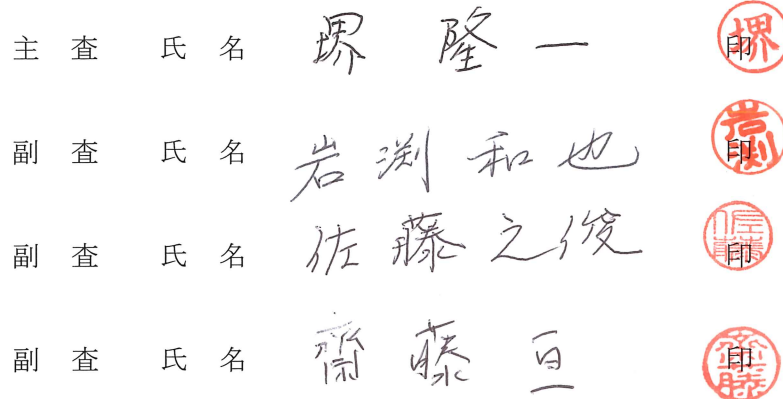 主査 氏名 堺 隆一 印 堺
副査 氏名 岩渕和也 印 岩渕
副査 氏名 佐藤之俊 印 佐藤
副査 氏名 齋藤 亘 印 齋藤